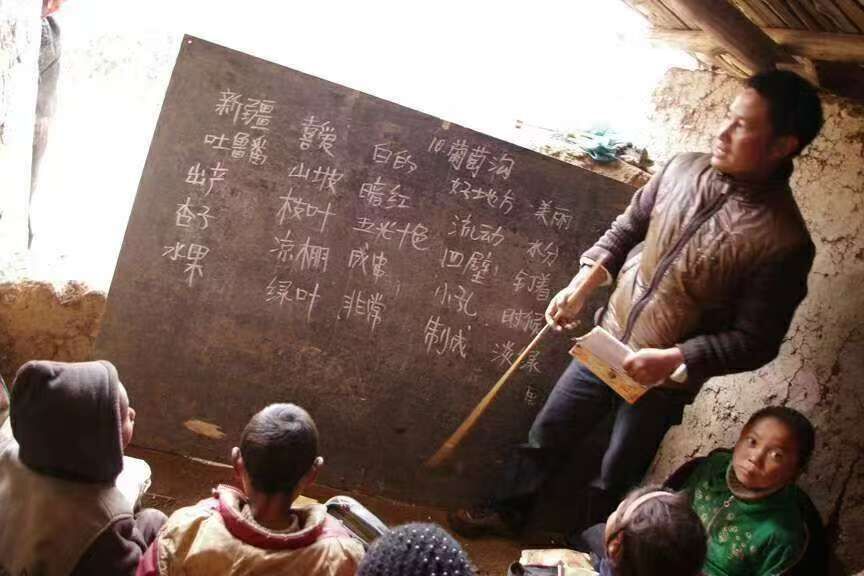 新疆
吐鲁番
出产
杏子
水果
喜爱
山坡
枝叶
凉棚
绿叶
白的
暗红
五光十色
成串
非常
10葡萄沟
好地方
流动
四壁
小孔
制成
美丽
水分
钉着
时候
淡